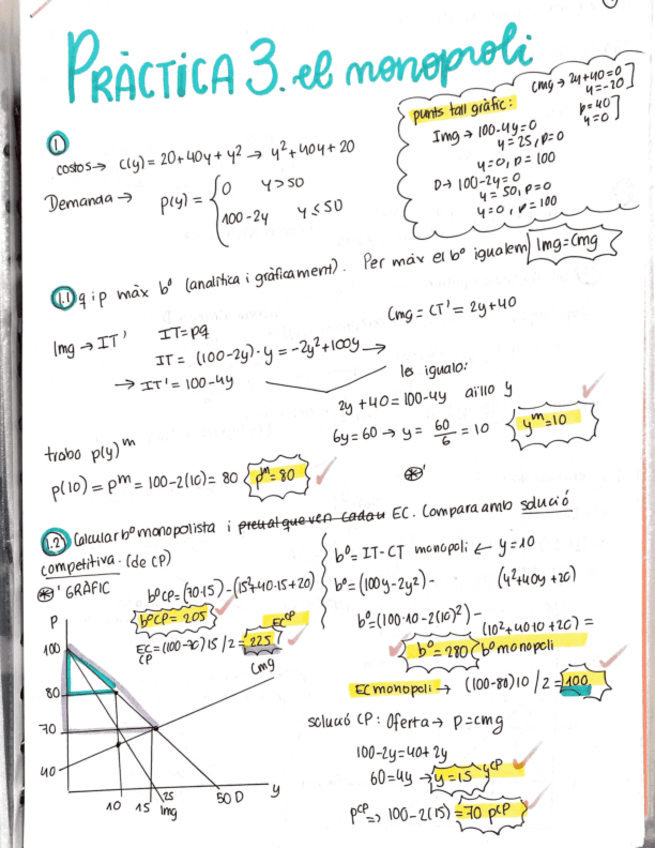 PRÀCTICA 3. el monopoli
punts tall gràfic:
Cmg → 2y+40=0
y=-20
p=40
y=0
Img → 100-4y=0
y=25, p=0
y=0, p=100
D → 100-2y=0
y=50, p=0
y=0, p=100
1
costos → C(y) = 20+40y+y² → y²+40y+20
Demanda → p(y) = { 0 y>50
100-2y y≤50
1.1 q i p màx bº (analítica i gràficament). Per màx el bº igualem Img=Cmg
Img → IT' IT=pq
IT = (100-2y)·y = -2y²+100y →
→ IT' = 100-4y
Cmg = CT' = 2y+40
les igualo:
2y+40=100-4y aïllo y
6y=60 → y = 60/6 = 10 yᵐ=10
trobo p(y)ᵐ
p(10) = pᵐ = 100-2(10) = 80 pᵐ=80
*'
1.2 Calcular bº monopolista i preu al que ven cada u EC. Compara amb solució
competitiva. (de CP)
*' GRÀFIC
bºCP = (70·15) - (15²+40·15+20)
bºCP = 205
EC = (100-70)15/2 = 225 ECᶜᴾ
CP
bº = IT-CT monopoli ← y=10
bº = (100y-2y²) - (y²+40y+20)
bº = (100·10-2(10)²) -
(10²+40·10+20) =
bº = 280 bº monopoli
EC monopoli → (100-80)10/2 = 100
solució CP: Oferta → p=cmg
100-2y=40+2y
60=4y → y=15 yᶜᴾ
pᶜᴾ => 100-2(15) = 70 pᶜᴾ
P
100
80
70
40
Cmg
10 15 25 50 D y
Img